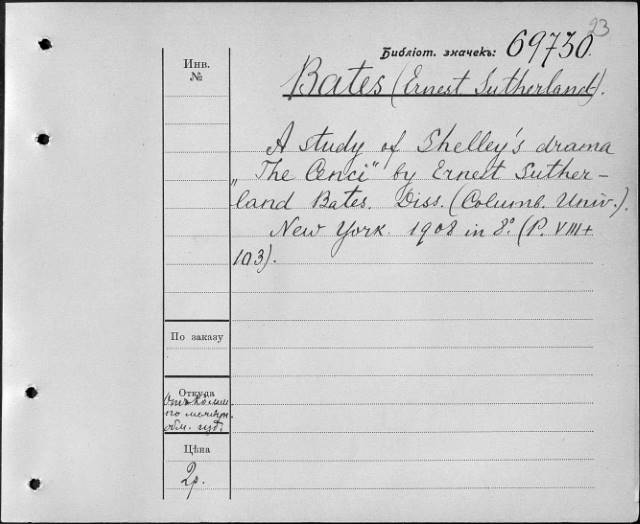 23
Библіот. значекъ: 69730.
Инв.
№
Bates (Ernest Sutherland).
A study of Shelley's drama
„The Cenci" by Ernest Suther-
land Bates. Diss. (Columb. Univ.).
New York. 1908 in 8°. (P. VIII+
103).
По заказу
Откуда
обм. изд.
Цѣна
2р.